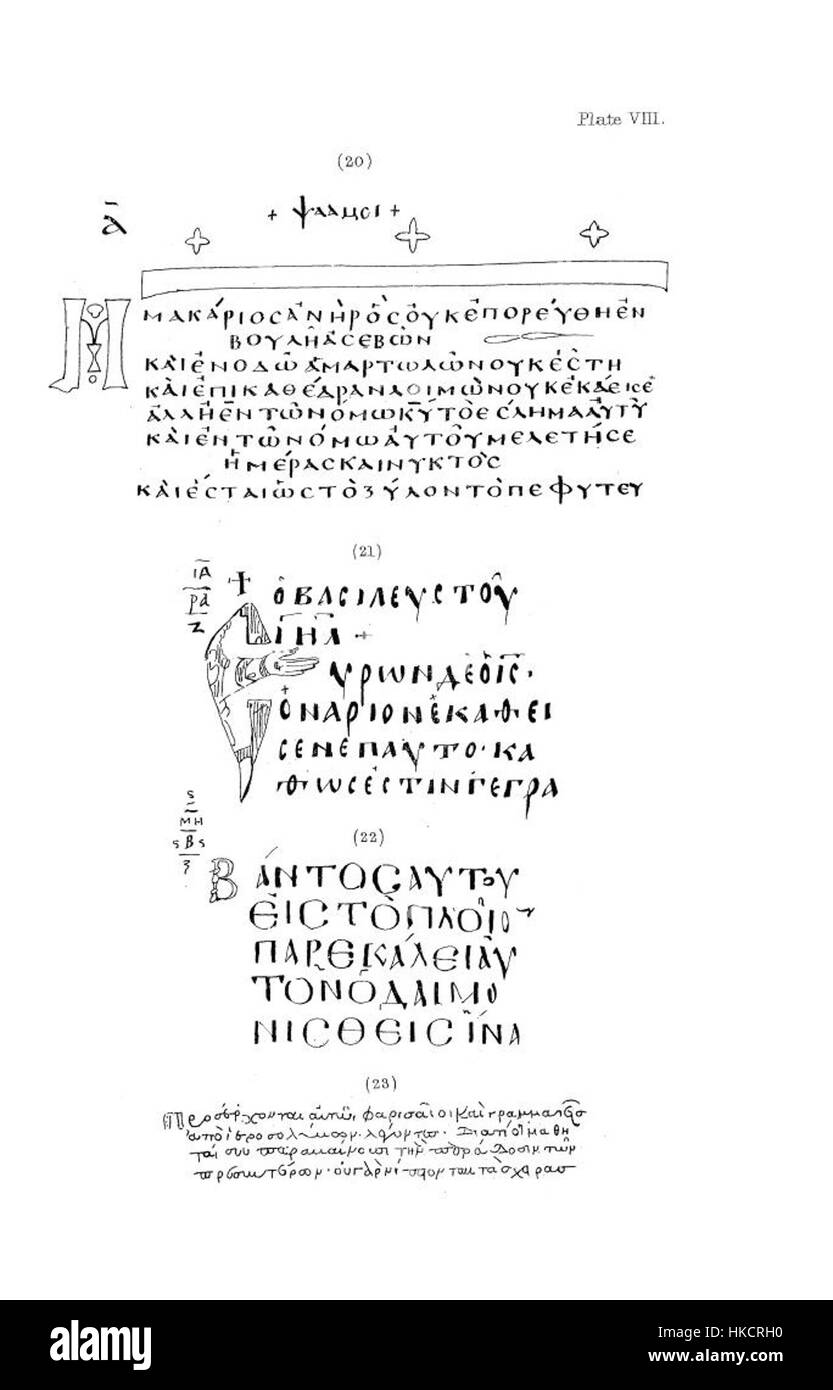 Plate VIII.
(20)
Α̅
+ ψαλμοι +
ΜΑΚΑΡΙΟΣΑΝΗΡΟΣΟΥΚΕΠΟΡΕΥΘΗΕΝ
ΒΟΥΛΗΑΣΕΒΩΝ
ΚΑΙΕΝΟΔΩΑΜΑΡΤΩΛΩΝΟΥΚΕΣΤΗ
ΚΑΙΕΠΙΚΑΘΕΔΡΑΝΛΟΙΜΩΝΟΥΚΕΚΑΘΙΣΕ
ΑΛΛΗΕΝΤΩΝΟΜΩΚΥΤΟΕΣΛΗΜΑΑΥΤΥ
ΚΑΙΕΝΤΩΝΟΜΩΑΥΤΟΥΜΕΛΕΤΗΣΕ
ΗΜΕΡΑΣΚΑΙΝΥΚΤΟΣ
ΚΑΙΕΣΤΑΙΩΣΤΟΞΥΛΟΝΤΟΠΕΦΥΤΕΥ
(21)
ΙΑ
ΡΑ
Ζ
ΟΒΑΣΙΛΕΥΣΤΟΥ
ΙΗΛ +
ΥΡΩΝΔΕΟΙΣ·
ΟΝΑΡΙΟΝΕΚΑΘΕΙ
ΣΕΝΕΠΑΥΤΟ·ΚΑ
ΘΩΣΕΣΤΙΝΓΕΓΡΑ
(22)
ΜΗ
Β
ΒΑΝΤΟΣΑΥΤΟΥ
ΕΙΣΤΟΠΛΟΙΟ
ΠΑΡΕΚΑΛΕΙΑΥ
ΤΟΝΟΔΑΙΜΟ
ΝΙΣΘΕΙΣΙΝΑ
(23)
Προσέρχονται αὐτῶ, φαρισαῖοι καὶ γραμματεῖς
ἀπὸ ἱεροσολύμων· λέγοντες· Διατί οἱ μαθη
ταί σου παραβαίνουσι τὴν παράδοσιν τῶν
πρεσβυτέρων· οὐ γὰρ νίπτονται τὰς χεῖρας
alamy
Image ID: HKCRH0
www.alamy.com